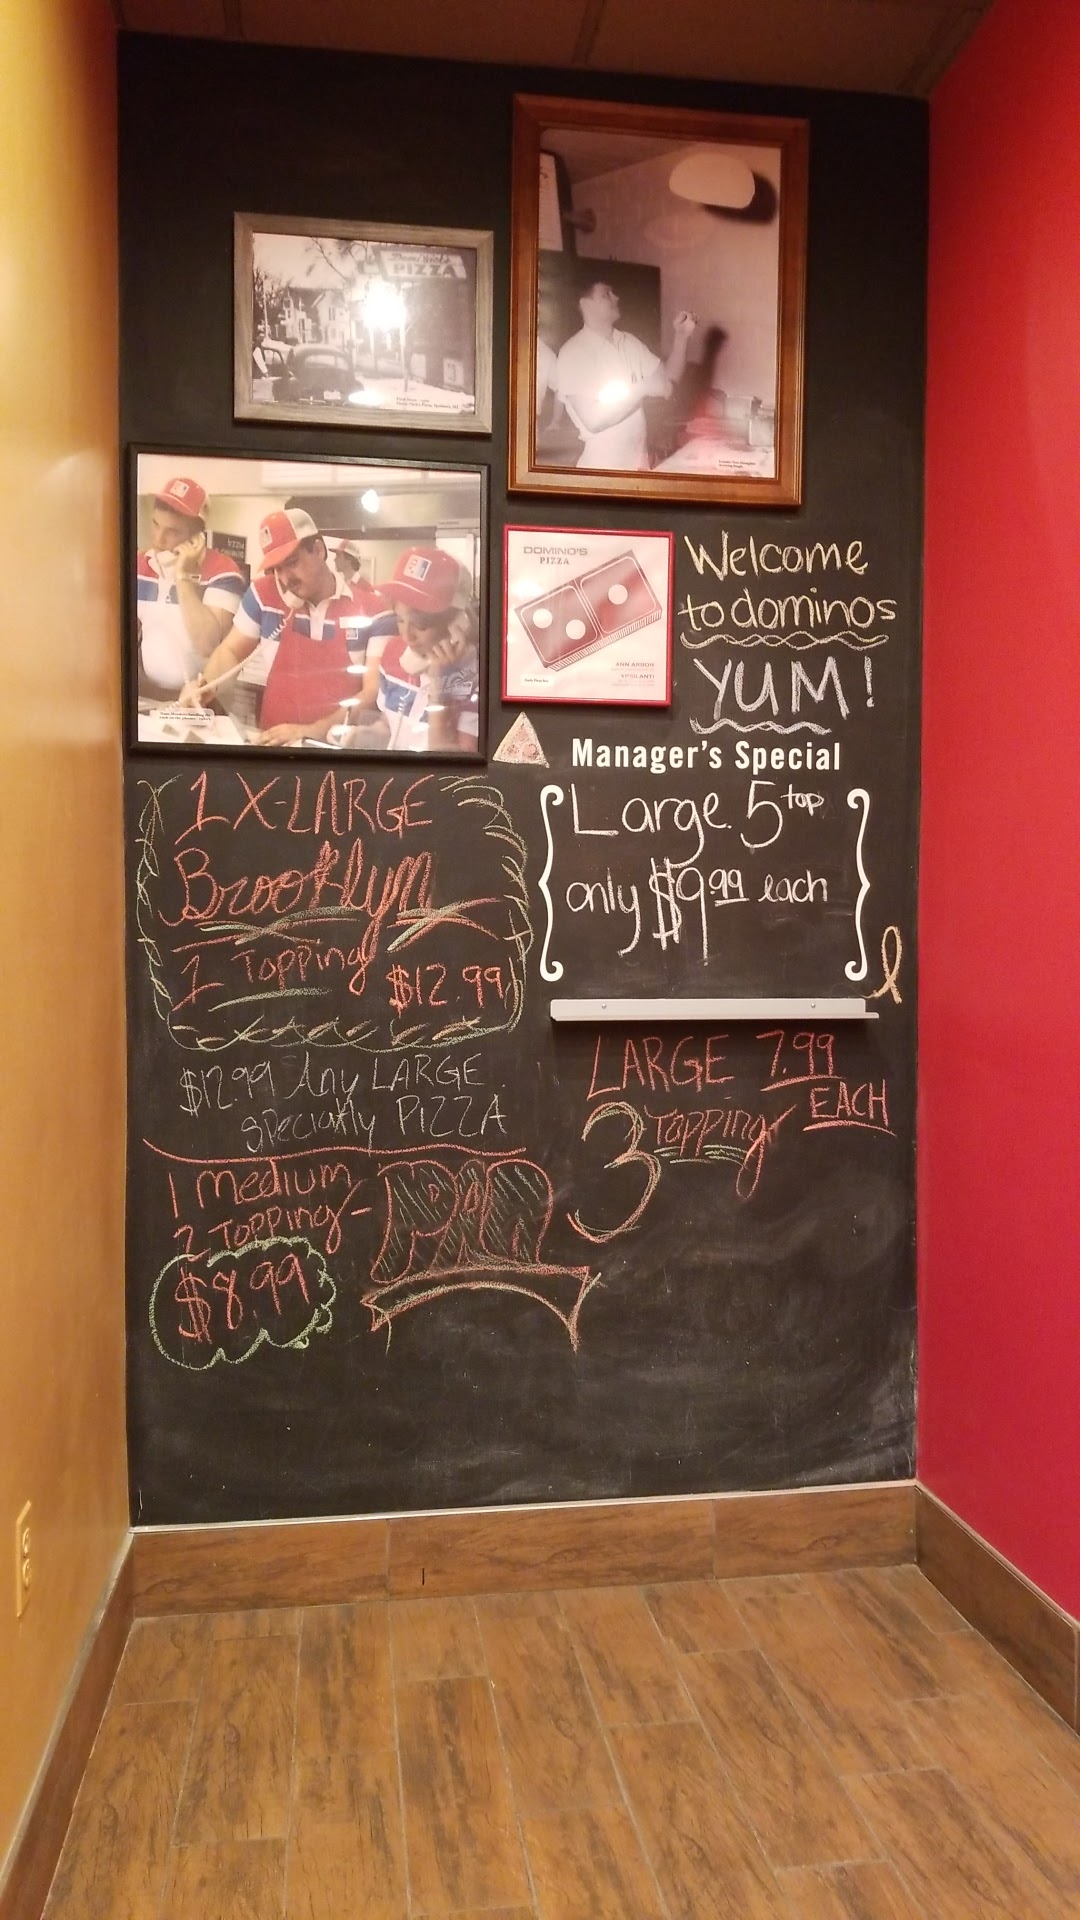 PIZZA
DOMINO'S
PIZZA
ANN ARBOR
YPSILANTI
Welcome
to dominos
YUM!
Manager's Special
Large 5 top
only $9.99 each
1 X-LARGE
Brooklyn
1 Topping
$12.99
$12.99 Any LARGE
specialty PIZZA
1 Medium
2 Topping -
PAN
$8.99
LARGE 7.99
EACH
3 Topping